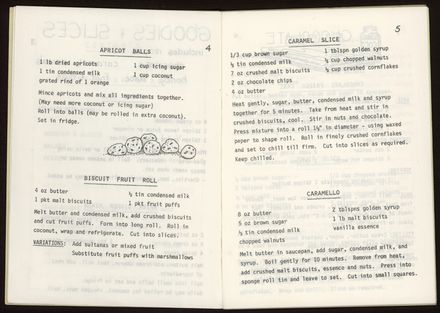 4
APRICOT BALLS
1 lb dried apricots 1 cup icing sugar
1 tin condensed milk 1 cup coconut
grated rind of 1 orange
Mince apricots and mix all ingredients together.
(May need more coconut or icing sugar)
Roll into balls (may be rolled in extra coconut).
Set in fridge.
BISCUIT FRUIT ROLL
4 oz butter ½ tin condensed milk
1 pkt malt biscuits 1 pkt fruit puffs
Melt butter and condensed milk, add crushed biscuits
and cut fruit puffs. Form into long roll. Roll in
coconut, wrap and refrigerate. Cut into slices.
VARIATIONS: Add sultanas or mixed fruit
Substitute fruit puffs with marshmallows
5
CARAMEL SLICE
1/3 cup brown sugar 1 tblspn golden syrup
½ tin condensed milk ½ cup chopped walnuts
7 oz crushed malt biscuits ½ cup crushed cornflakes
2 oz chocolate chips
4 oz butter
Heat gently, sugar, butter, condensed milk and syrup
together for 5 minutes. Take from heat and stir in
crushed biscuits, cool. Stir in nuts and chocolate.
Press mixture into a roll 1½" in diameter - using waxed
paper to shape roll. Roll in finely crushed cornflakes
and set to chill till firm. Cut into slices as required.
Keep chilled.
CARAMELLO
8 oz butter 2 tblspns golden syrup
5 oz brown sugar 1 lb malt biscuits
½ tin condensed milk vanilla essence
chopped walnuts
Melt butter in saucepan, add sugar, condensed milk, and
syrup. Boil gently for 10 minutes. Remove from heat,
add crushed malt biscuits, essence and nuts. Press into
sponge roll tin and leave to set. Cut into small squares.